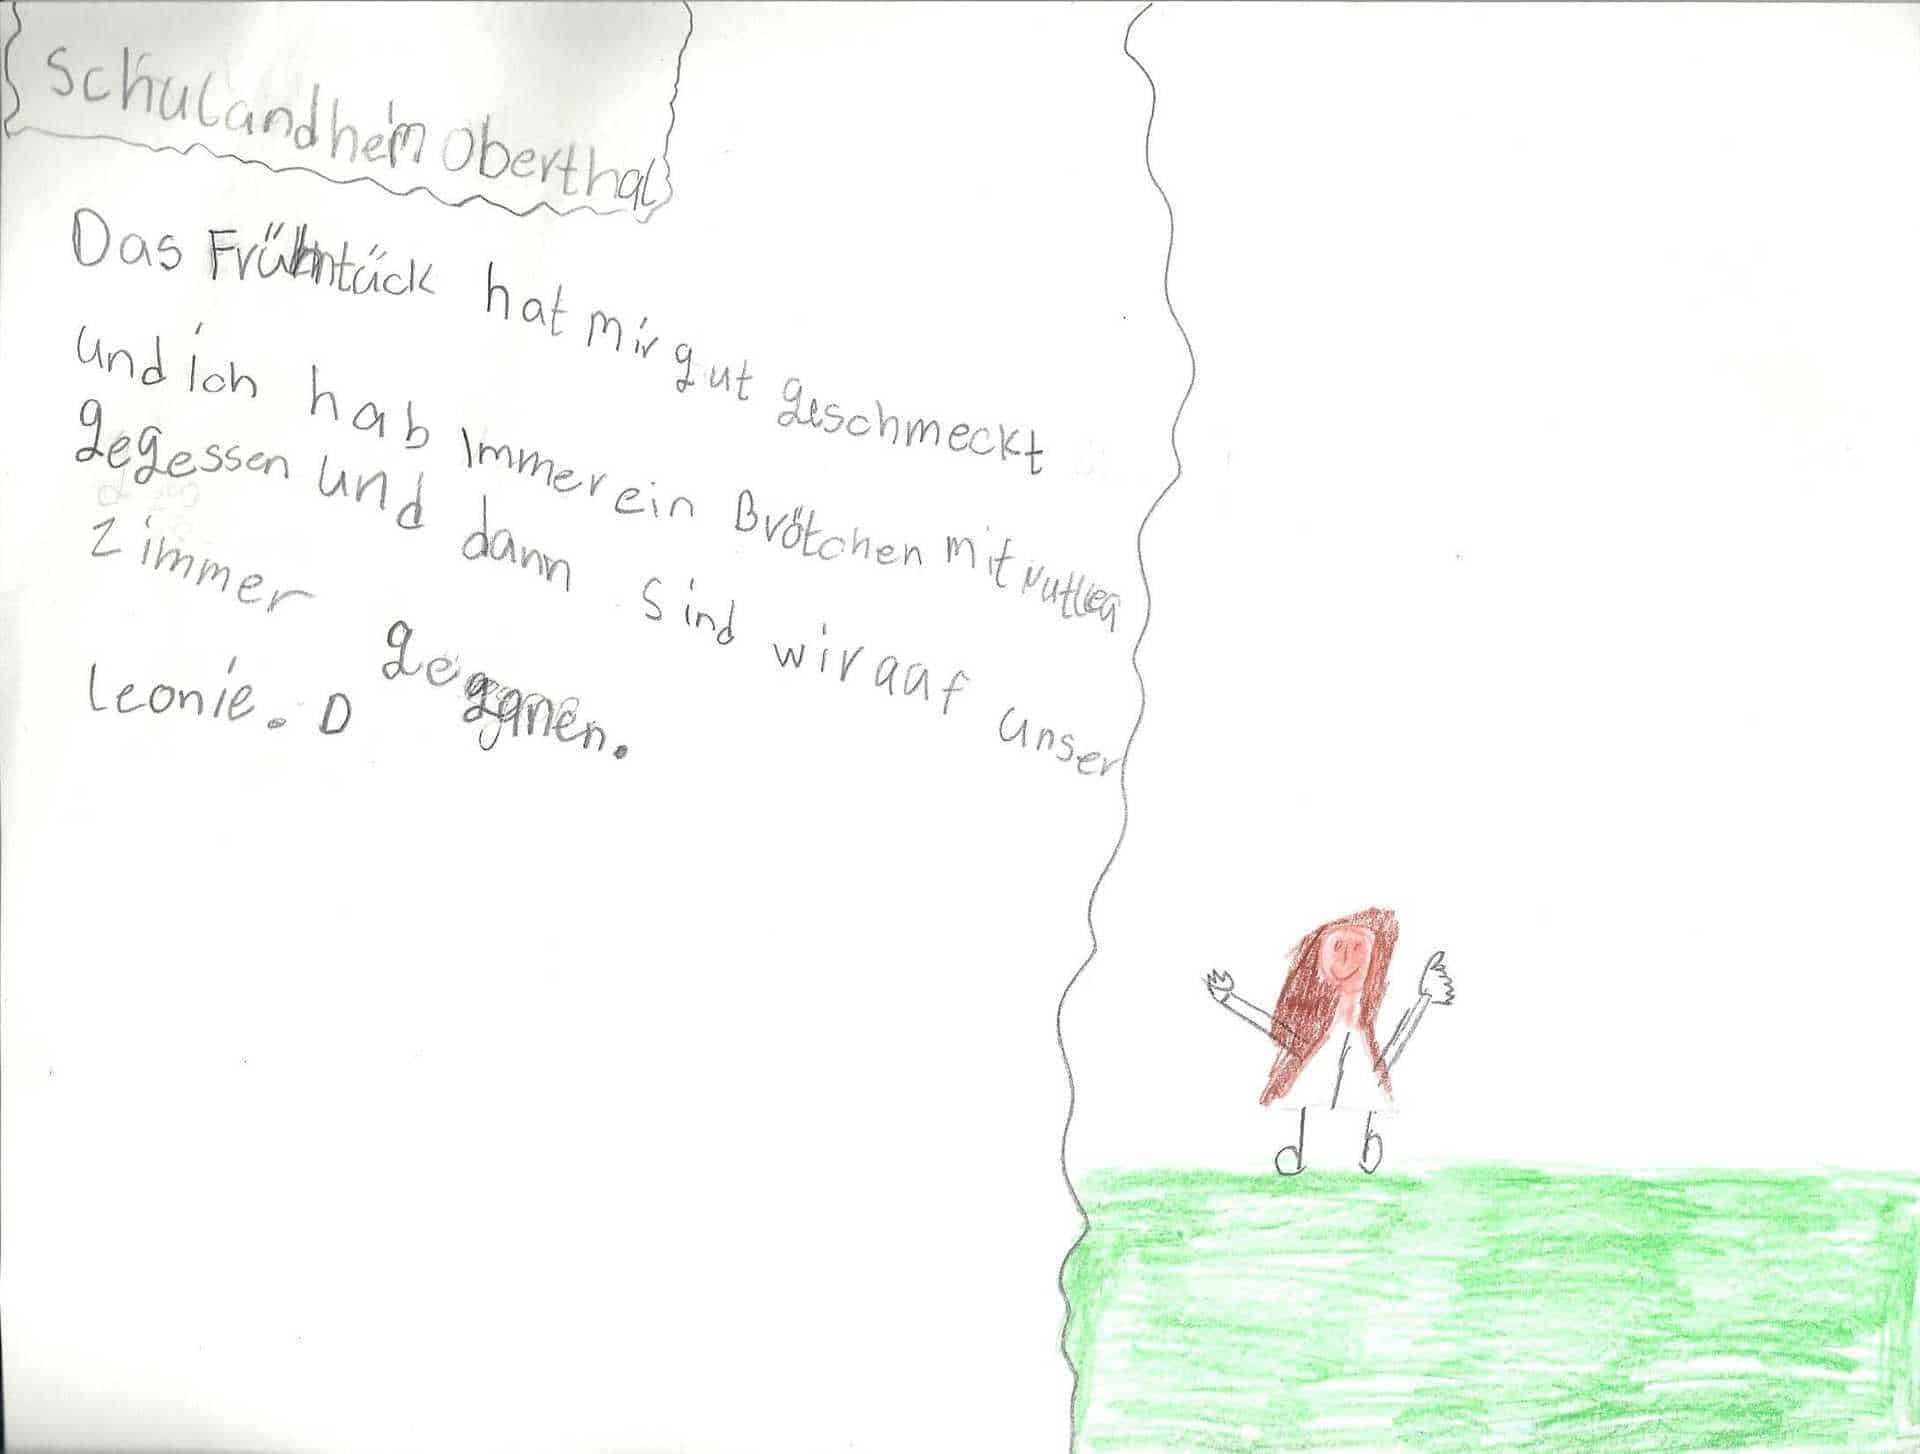 Schulandheim Oberthal
Das Frühntück hat mir gut geschmeckt
und ich hab Immer ein Brötchen mit
gegessen und dann sind wir auf unser
zimmer
leonie. D